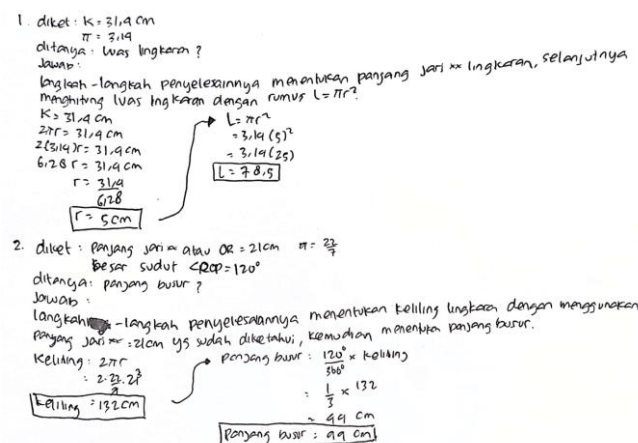 1. diket : K = 31,4 cm
π = 3,14
ditanya : Luas lingkaran ?
Jawab :
langkah-langkah penyelesainnya menentukan panjang jari ×× lingkaran, selanjutnya
menghitung luas lingkaran dengan rumus L = πr².
K = 31,4 cm
2πr = 31,4 cm
2(3,14)r = 31,4 cm
6,28 r = 31,4 cm
r = 31,4 / 6,28
r = 5 cm
L = πr²
= 3,14 (5)²
= 3,14 (25)
L = 78,5
2. diket : panjang jari × atau OR = 21 cm π = 22/7
besar sudut <ROP = 120°
ditanya : panjang busur ?
Jawab :
langkah-langkah penyelesaiannya menentukan keliling lingkaran dengan menggunakan
panjang jari ×× = 21cm yg sudah diketahui, kemudian menentukan panjang busur.
Keliling : 2πr
: 2 . 22/7 . 21 3
keliling = 132 cm
panjang busur : 120°/360° × keliling
: 1/3 × 132
= 44 cm
Panjang busur : 44 cm